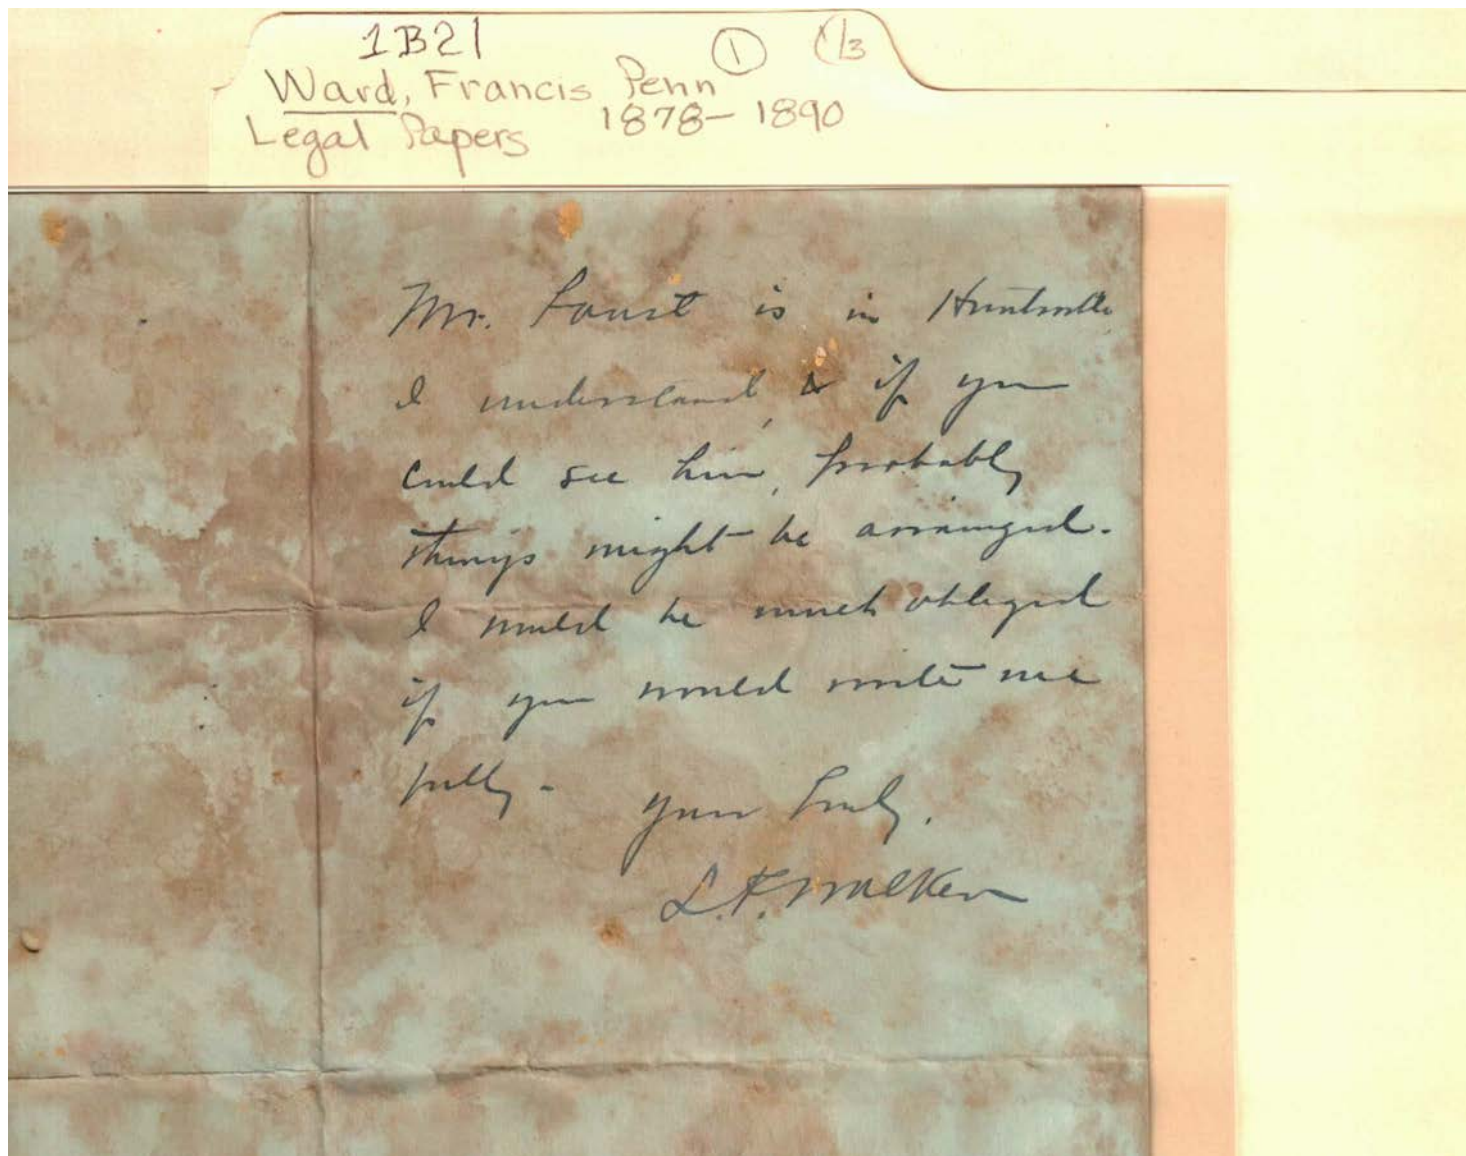 1B21 ① 1/3
Ward, Francis Penn
Legal Papers 1878-1890
Mr. Foust is in Huntsville
I understand, & if you
could see him, probably
things might be arranged.
I would be much obliged
if you would write me
fully -
Yours truly,
L.P. Walker